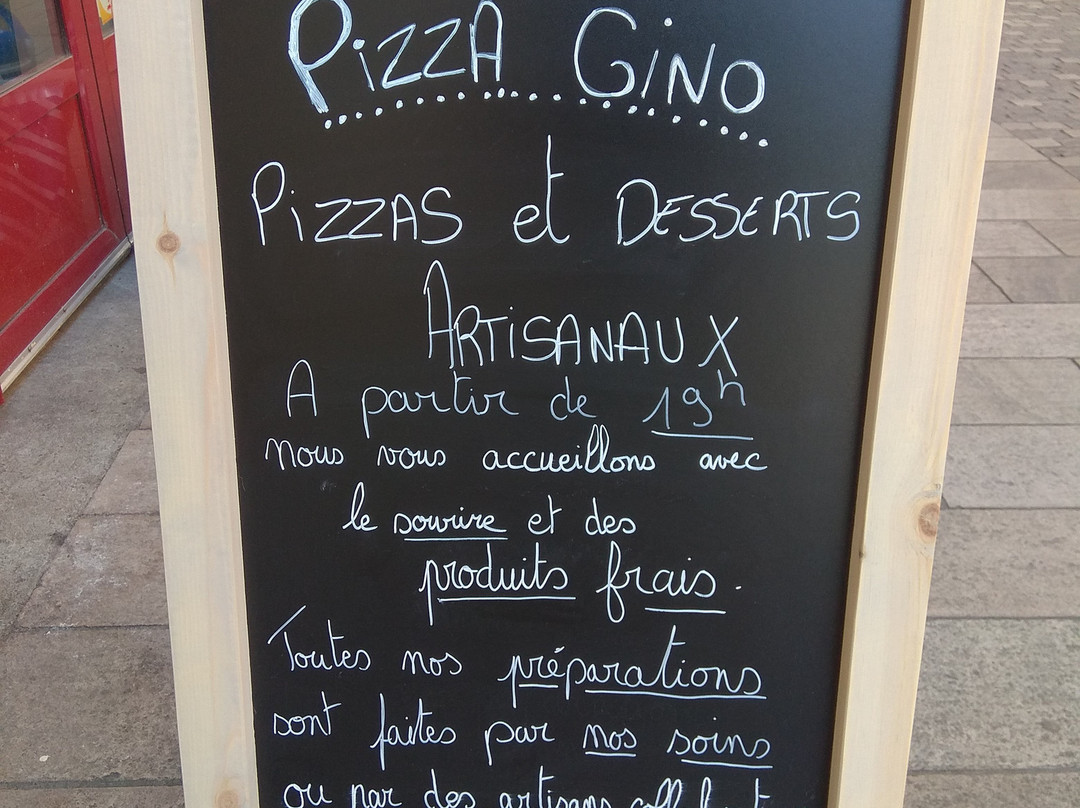 PiZZA GiNO
PiZZAS et DESSERTS
ARTiSANAUX
A partir de 19h
nous vous accueillons avec
le sourire et des
produits frais.
Toutes nos préparations
sont faites par nos soins
ou par des artisans